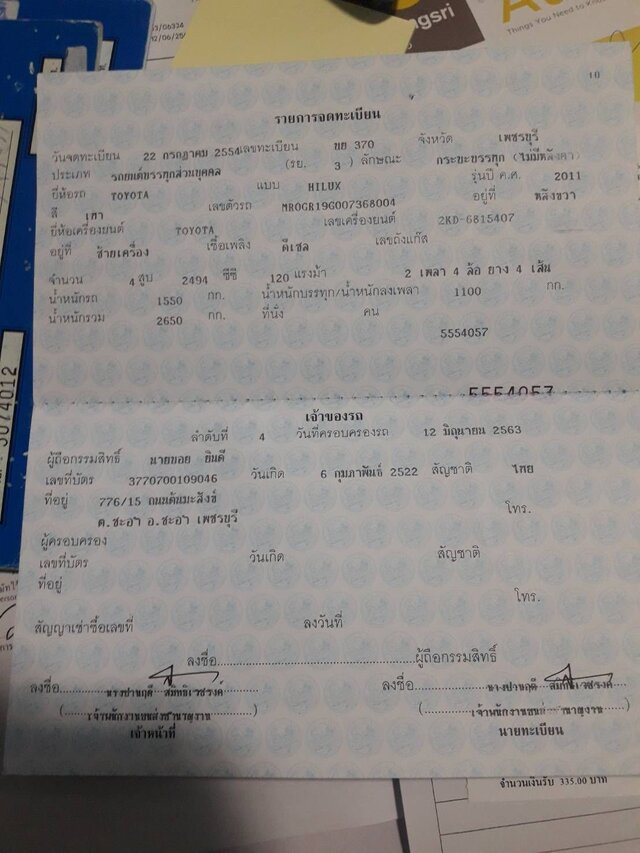 ngsri
Things You Need to Know
3/06334
12/06/25
10
รายการจดทะเบียน
วันจดทะเบียน 22 กรกฎาคม 2554 เลขทะเบียน บย 370 จังหวัด เพชรบุรี
ประเภท รถยนต์บรรทุกส่วนบุคคล (รย. 3 ) ลักษณะ กระบะบรรทุก (ไม่มีหลังคา)
ยี่ห้อรถ TOYOTA แบบ HILUX รุ่นปี ค.ศ. 2011
สี เทา เลขตัวรถ MR0GR19G007368004 อยู่ที่ หลังขวา
ยี่ห้อเครื่องยนต์ TOYOTA เลขเครื่องยนต์ 2KD-6815407
อยู่ที่ ซ้ายเครื่อง เชื้อเพลิง ดีเซล เลขถังแก๊ส
จำนวน 4 สูบ 2494 ซีซี 120 แรงม้า 2 เพลา 4 ล้อ ยาง 4 เส้น
น้ำหนักรถ 1550 กก. น้ำหนักบรรทุก/น้ำหนักลงเพลา 1100 กก.
น้ำหนักรวม 2650 กก. ที่นั่ง คน
5554057
5554057
เจ้าของรถ
ลำดับที่ 4 วันที่ครอบครองรถ 12 มิถุนายน 2563
ผู้ถือกรรมสิทธิ์ นายขอย ยินดี
เลขที่บัตร 3770700109046 วันเกิด 6 กุมภาพันธ์ 2522 สัญชาติ ไทย
ที่อยู่ 776/15 ถนนคันมะสังข์ โทร.
ต.ชะอำ อ.ชะอำ เพชรบุรี
ผู้ครอบครอง
เลขที่บัตร วันเกิด สัญชาติ
ที่อยู่
โทร.
สัญญาเช่าซื้อเลขที่ ลงวันที่
ลงชื่อ ผู้ถือกรรมสิทธิ์
ลงชื่อ ลงชื่อ
เจ้าหน้าที่ นายทะเบียน
5074012
จำนวนเงินรับ 335.00 บาท